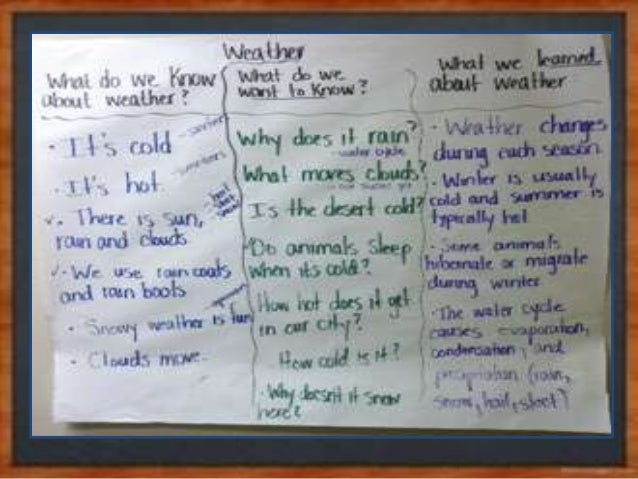 Weather
What do we Know
about weather?
- It's cold
- It's hot
There is sun,
rain and clouds
- We use rain coats
and rain boots
- Snowy weather is fun
- Clouds move.
What do we
want to know?
Why does it rain?
water cycle
What moves clouds?
Is the desert cold?
Do animals sleep
when its cold?
How hot does it get
in our city?
How cold is it?
Why doesn't it snow
here?
What we learned
about weather
- Weather changes
during each season
- Winter is usually
cold and summer is
typically hot
- Some animals
hibernate or migrate
during winter
- The water cycle
causes evaporation,
condensation, and
(rain,
snow, hail, sleet)